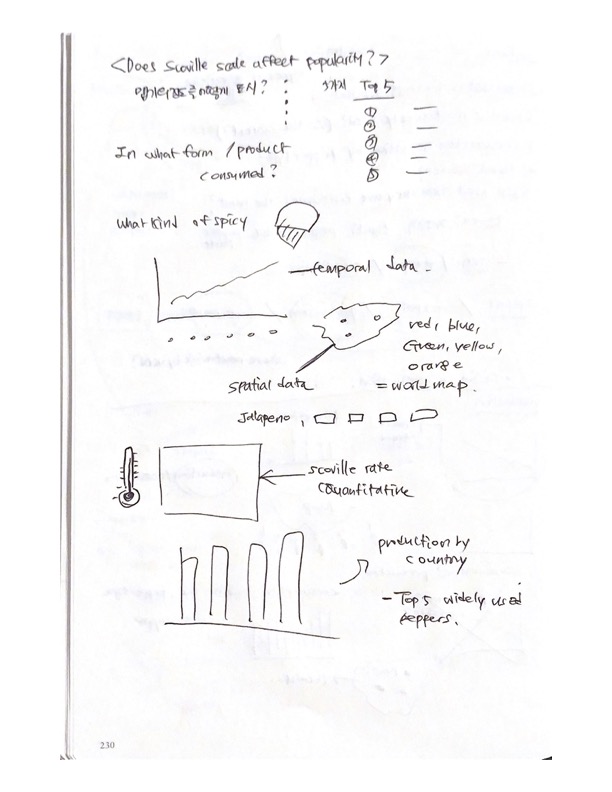 <Does scoville scale affect popularity?>
인기의정도를 어떻게 표시?
5가지 Top 5
① —
② —
③ —
④ —
⑤ —
In what form / product
consumed?
what kind of spicy
temporal data.
red, blue,
Green, yellow,
orange
= world map.
spatial data
Jalapeno,
scoville rate
Quantitative
production by
country
- Top 5 widely used
peppers.
230